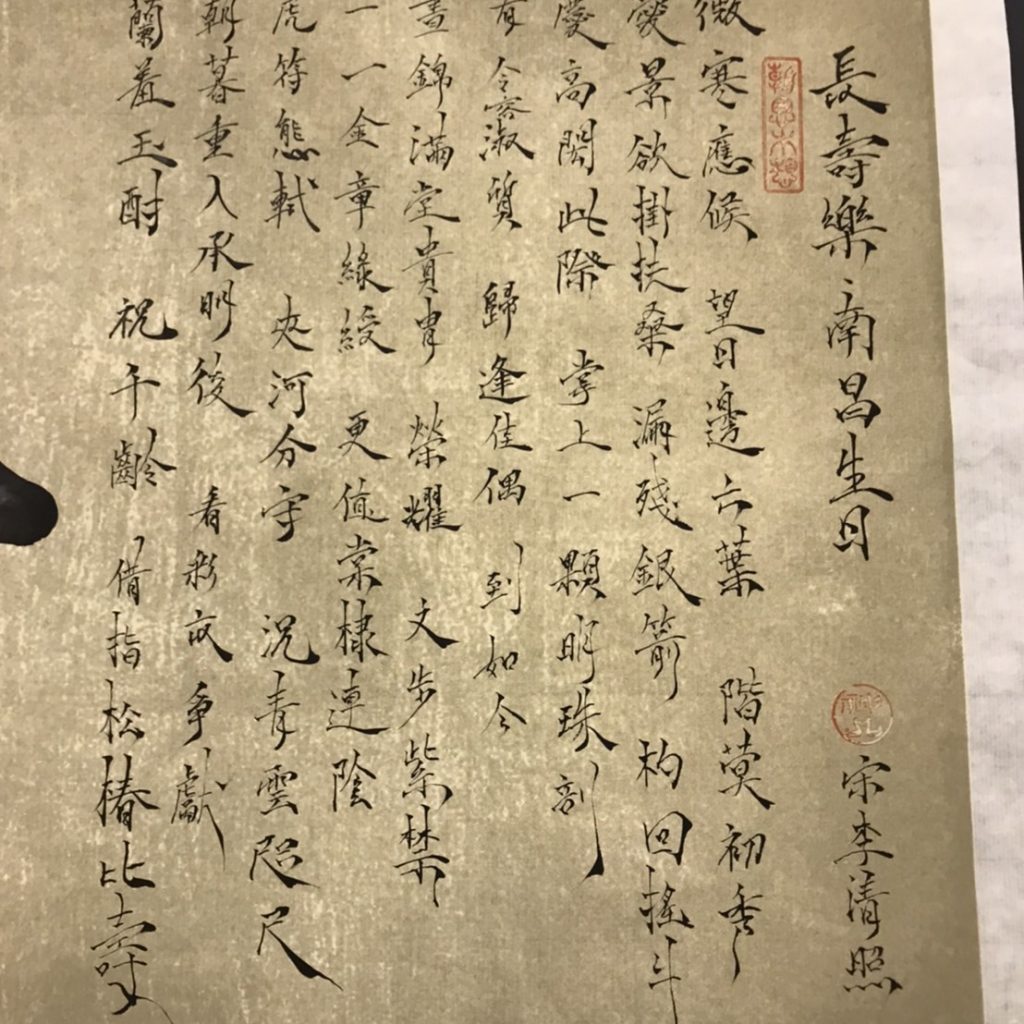 長壽樂·南昌生日 宋李清照
微寒應候 望日邊六葉 階蓂初秀
愛景欲掛扶桑 漏殘銀箭 杓回搖斗
慶高閎此際 掌上一顆明珠剖
有令容淑質 歸逢佳偶 到如今
晝錦滿堂貴胄 榮耀 文步紫禁
一一金章綠綬 更值棠棣連陰
虎符態軾 夾河分守 況青雲咫尺
朝暮重入承明後 看彩衣爭獻
蘭羞玉酎 祝千齡 借指松椿比壽